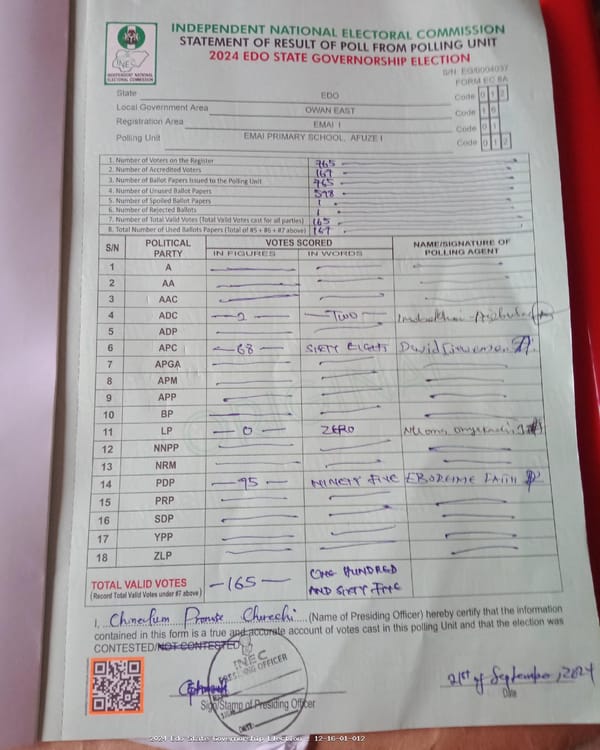 INDEPENDENT NATIONAL ELECTORAL COMMISSION
STATEMENT OF RESULT OF POLL FROM POLLING UNIT
2024 EDO STATE GOVERNORSHIP ELECTION
INEC
INDEPENDENT NATIONAL ELECTORAL COMMISSION
S/N: EG/0004037
FORM EC 8A
State EDO Code 0 1 2
Local Government Area OWAN EAST Code 1 6
Registration Area EMAI I Code 0 1
Polling Unit EMAI PRIMARY SCHOOL, AFUZE I Code 0 1 2
1. Number of Voters on the Register 765
2. Number of Accredited Voters 167
3. Number of Ballot Papers Issued to the Polling Unit 765
4. Number of Unused Ballot Papers 598
5. Number of Spoiled Ballot Papers 1
6. Number of Rejected Ballots 1
7. Number of Total Valid Votes (Total Valid Votes cast for all parties) 165
8. Total Number of Used Ballots Papers (Total of #5 + #6 + #7 above) 167
S/N POLITICAL PARTY VOTES SCORED NAME/SIGNATURE OF POLLING AGENT
IN FIGURES IN WORDS
1 A
2 AA
3 AAC
4 ADC 2 TWO
5 ADP
6 APC 68 SIXTY EIGHT David
7 APGA
8 APM
9 APP
10 BP
11 LP 0 ZERO
12 NNPP
13 NRM
14 PDP 95 NINETY FIVE EBOREIME FAITH
15 PRP
16 SDP
17 YPP
18 ZLP
TOTAL VALID VOTES 165 ONE HUNDRED AND SIXTY FIVE
(Record Total Valid Votes under #7 above)
I, Chinecfum Promise Churechi (Name of Presiding Officer) hereby certify that the information
contained in this form is a true and accurate account of votes cast in this polling Unit and that the election was
CONTESTED/NOT CONTESTED
INEC
PRESIDING OFFICER
DATE:
21st of September, 2024
Sign/Stamp of Presiding Officer Date
2024 Edo State Governorship Election - 12-16-01-012